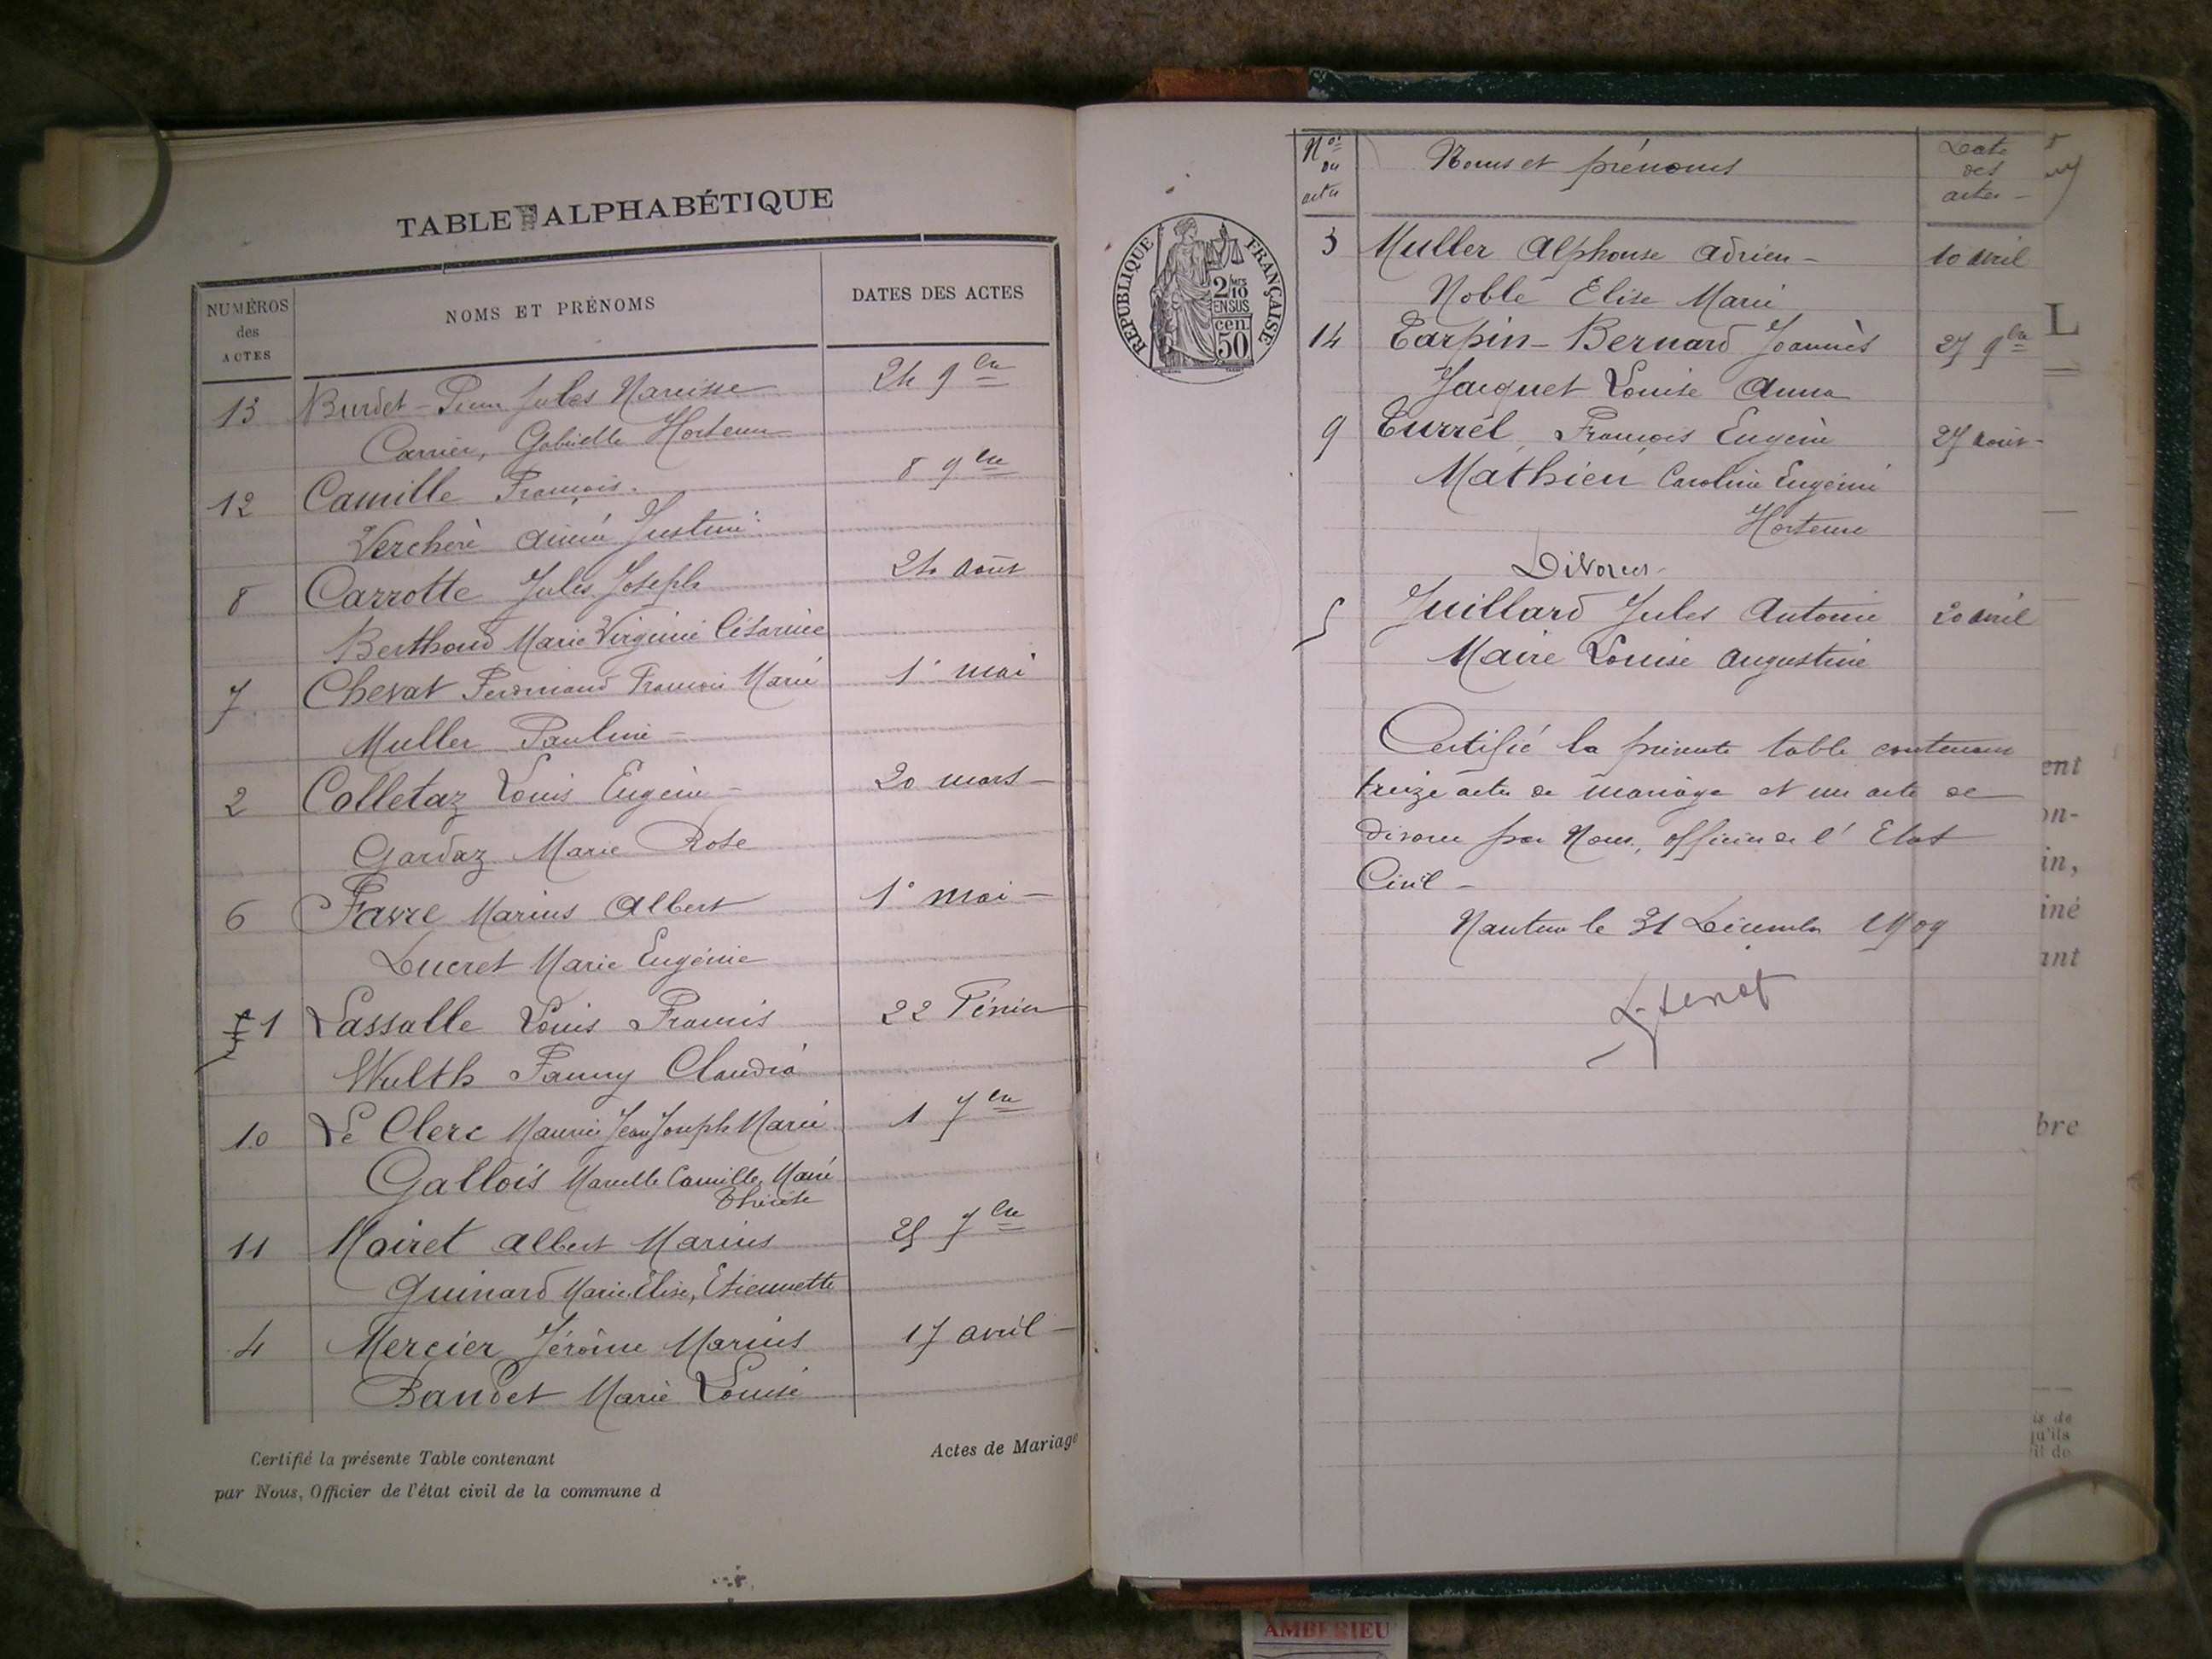 TABLE ALPHABÉTIQUE
NUMÉROS des ACTES
NOMS ET PRÉNOMS
DATES DES ACTES
13 Burdet Jules Narcisse 24 9bre
Carrier, Gabrielle Hortense
12 Camille François. 8 9bre
Verchère Justine
8 Carrotte Jules Joseph 24 août
Berthoud Marie Virginie Césarine
7 Chevat Ferdinand François Marie 1° mai
Muller Pauline
2 Colletaz Louis Eugène 20 mars
Gardaz Marie Rose
6 Favre Marius Albert 1° mai
Ducret Marie Eugénie
1 Lassalle Louis Francis 22 Février
Wulth Fanny Claudia
10 Le Clerc Maurice Jean Joseph Marie 1 7bre
Gallois Marcelle Camille Marie
Thérèse
11 Mairet Albert Marius 25 7bre
Guinard Marie Elise, Etiennette
4 Mercier Jérôme Marius 17 avril
Baudet Marie Louise
Certifié la présente Table contenant Actes de Mariage
par Nous, Officier de l'état civil de la commune d
Nos
Noms et prénoms
Date
des
actes
REPUBLIQUE FRANÇAISE
2/10
EN SUS
50 cen
3 Muller Alphonse Adrien 10 avril
Noble Elise Marie
14 Tarpin-Bernard Joannès 27 9bre
Jacquet Louise Anna
9 Turrel, François Eugène 27 août
Mathieu Caroline Eugénie
Hortense
Divorces
5 Juillard Jules Antoine 20 avril
Maire Louise Augustine
Certifié la présente table contenant
treize actes de mariage et un acte de
divorce par Nous, officier de l'Etat
Civil
Nantua le 31 Décembre 1909
L
ent
on-
in,
iné
ant
bre
is de
qu'ils
il de
AMBERIEU